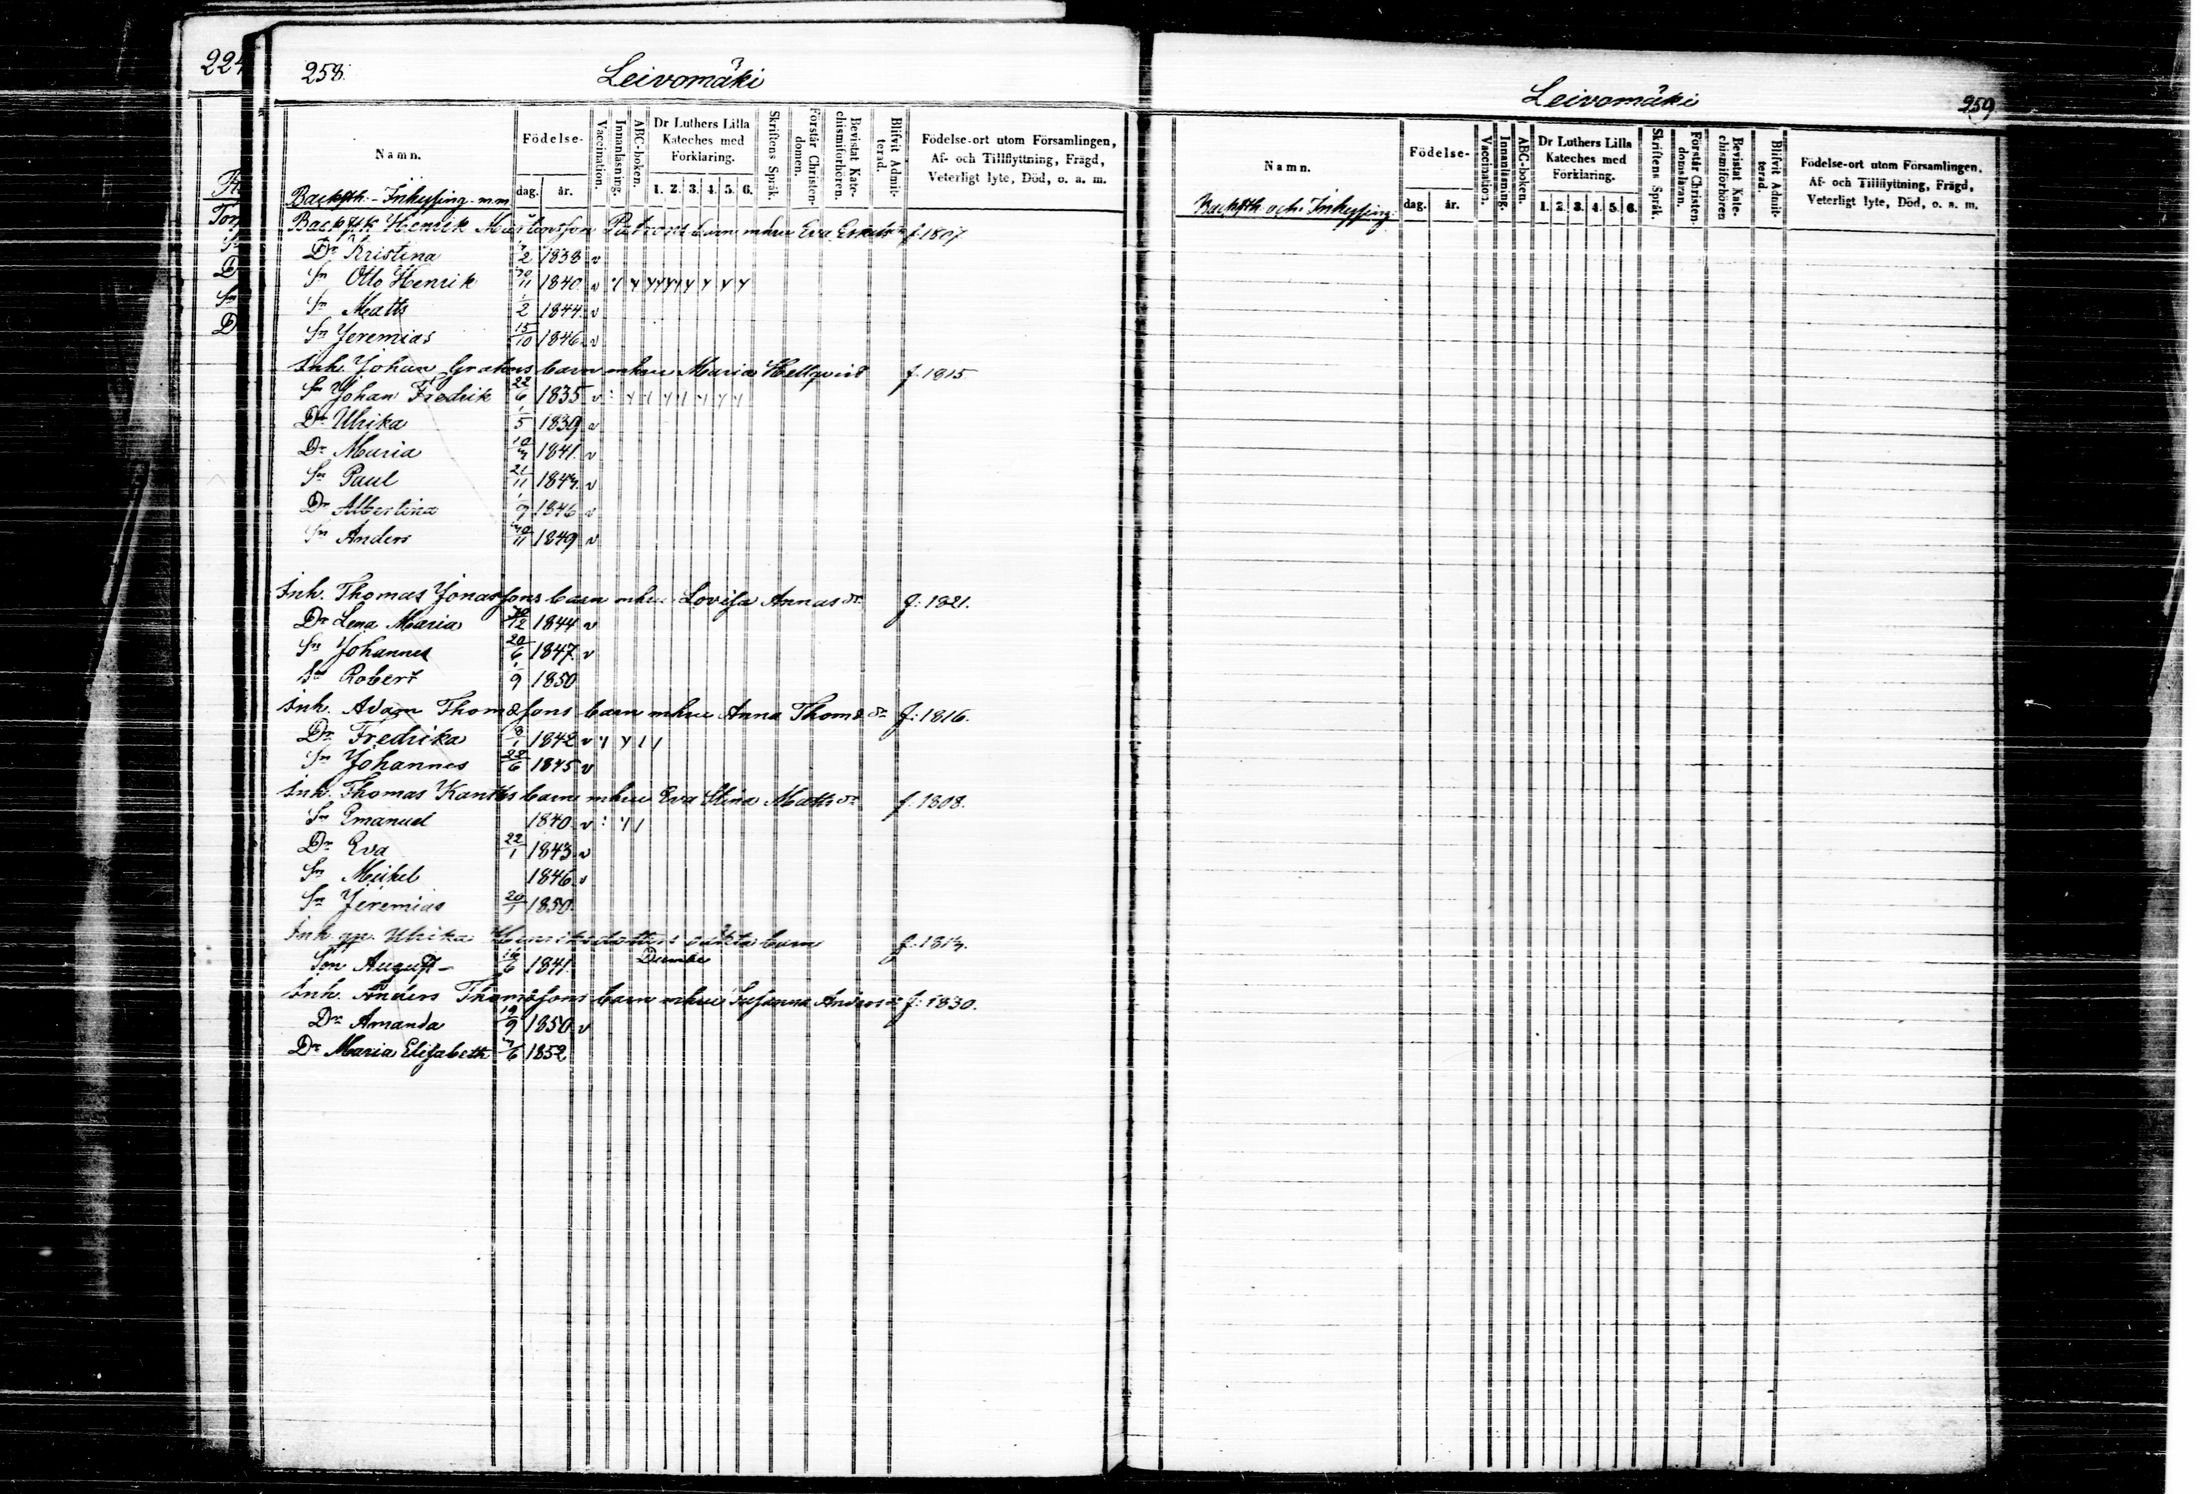 224
258.
Leivomäki
Namn.
Födelse-
dag. år.
Vaccination.
Innanläsning.
ABC-boken.
Dr Luthers Lilla Kateches med Förklaring.
1. 2. 3. 4. 5. 6.
Skriftens Språk.
Förstår Christendomen.
Bevistat Katechismiförhören.
Blifvit Admitterad.
Födelse-ort utom Församlingen, Af- och Tillflyttning, Frägd, Veterligt lyte, Död, o. a. m.
Backsth.- Inhysing m m
Henrik barn m hu Eva f. 1807
Dr Kristina 2 1838 v
Sn Otto Henrik 30/11 1840. v
Sn Matts 1/2 1844. v
Sn Jeremias 15/10 1846. v
Inh. Johan barn m hu Maria Hellqvist f. 1815
Sn Johan Fredrik 22/6 1835 v
Dr Ulrika 1/5 1839 v
Dr Maria 1841. v
Sn Paul 21/11 1843. v
Dr Albertina 1846 v
Sn Anders 30/11 1849 v
Inh. Thomas Jonassons barn m hu Lovisa Annas dr f: 1821.
Dr Lena Maria 30/12 1844 v
Sn Johannes 20/6 1847. v
Sn Robert 1/9 1850
Inh. Adam Thomæsons barn m hu Anna Thoms dr f: 1816.
Dr Fredrika 1842 v
Sn Johannes 22/6 1845 v
Inh. Thomas barn m hu Eva Stina Matts dr f. 1808.
Sn Emanuel 1840 v
Dr Eva 22/1 1843 v
Sn Mickel 1846 v
Sn Jeremias 20/1 1850
Inh. Ulrika Henriksdotters oäkta barn f. 1813.
Son August 16/6 1841.
Inh. Anders Thomæsons barn m hu Susanna Anders dr f: 1830.
Dr Amanda 19/9 1850 v
Dr Maria Elisabeth 1852
Leivomäki
259
Namn.
Födelse-
dag. år.
Vaccination.
Innanläsning.
ABC-boken.
Dr Luthers Lilla Kateches med Förklaring.
1. 2. 3. 4. 5. 6.
Skriftens Språk.
Förstår Christendomsläran.
Bevistat Katechismiförhören
Blifvit Admitterad.
Födelse-ort utom Församlingen, Af- och Tillflyttning, Frägd, Veterligt lyte, Död, o. a. m.
Backsth. och Inhysing.